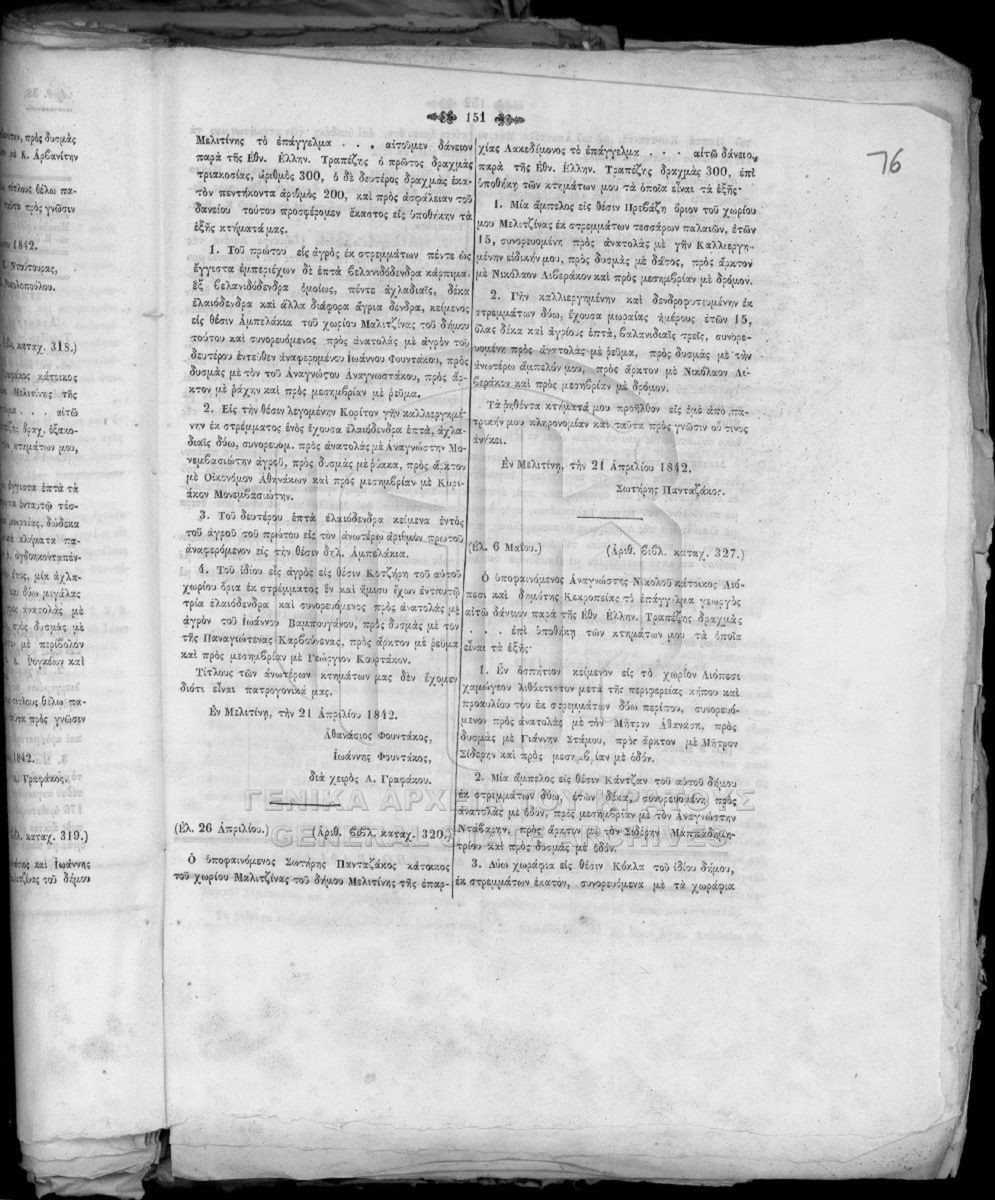 151
76
Μελιτίνης τὸ ἐπάγγελμα . . . αἰτοῦμεν δάνειον
παρὰ τῆς Ἐθν. Ἑλλην. Τραπέζης ὁ πρῶτος δραχμὰς
τριακοσίας, ἀριθμὸς 300, ὁ δὲ δεύτερος δραχμὰς ἑκα-
τὸν πεντήκοντα ἀριθμὸς 200, καὶ πρὸς ἀσφάλειαν τοῦ
δανείου τούτου προσφέρομεν ἕκαστος εἰς ὑποθήκην τὰ
ἑξῆς κτήματά μας.
1. Τοῦ πρώτου εἷς ἀγρὸς ἐκ στρεμμάτων πέντε ὡς
ἔγγιστα ἐμπεριέχων δὲ ἑπτὰ βελανιδόδενδρα κάρπιμα.
ἓξ βελανιδόδενδρα ὁμοίως, πέντε ἀχλαδιαῖς, δέκα
ἐλαιόδενδρα καὶ ἄλλα διάφορα ἄγρια δένδρα, κείμενος
εἰς θέσιν Ἀμπελάκια τοῦ χωρίου Μαλιτζίνας τοῦ δήμου
τούτου καὶ συνορευόμενος πρὸς ἀνατολὰς μὲ ἀγρὸν τοῦ
δευτέρου ἐντεῦθεν ἀναφερομένου Ἰωάννου Φουντάκου, πρὸς
δυσμὰς μὲ τὸν τοῦ Ἀναγνώστου Ἀναγνωστάκου, πρὸς ἄρ-
κτον μὲ ῥάχην καὶ πρὸς μεσημβρίαν μὲ ῥεῦμα.
2. Εἰς τὴν θέσιν λεγομένην Κορίτον γῆν καλλιεργημέ-
νην ἐκ στρέμματος ἑνὸς ἔχουσα ἐλαιόδενδρα ἑπτὰ, ἀχλα-
διαῖς δύω, συνορευομ. πρὸς ἀνατολὰς μὲ Ἀναγνώστην Μο-
νεμβασιώτην ἀγροῦ, πρὸς δυσμὰς μὲ ῥύακα, πρὸς ἄρκτον
μὲ Οἰκονόμον Ἀθηνάκων καὶ πρὸς μεσημβρίαν μὲ Κυρι-
άκον Μονεμβασιώτην.
3. Τοῦ δευτέρου ἑπτὰ ἐλαιόδενδρα κείμενα ἐντὸς
τοῦ ἀγροῦ τοῦ πρώτου εἰς τὸν ἀνωτέρω ἀριθμὸν πρῶτον
ἀναφερόμενον εἰς τὴν θέσιν δηλ. Ἀμπελάκια.
4. Τοῦ ἰδίου εἷς ἀγρὸς εἰς θέσιν Κοτζήρη τοῦ αὐτοῦ
χωρίου ὅρια ἐκ στρέμματος ἓν καὶ ἥμισυ ἔχων ἐνταυτῷ
τρία ἐλαιόδενδρα καὶ συνορευόμενος πρὸς ἀνατολὰς μὲ
ἀγρὸν τοῦ Ἰωάννου Βαμπουγάνου, πρὸς δυσμὰς μὲ τὸν
τῆς Παναγιώτενας Καρβούνενας, πρὸς ἄρκτον μὲ ῥεῦμα
καὶ πρὸς μεσημβρίαν μὲ Γεώργιον Κουρτάκον.
Τίτλους τῶν ἀνωτέρων κτημάτων μας δὲν ἔχομεν
διότι εἶναι πατρογονικά μας.
Ἐν Μελιτίνῃ, τὴν 21 Ἀπριλίου 1842.
Ἀθανάσιος Φουντάκος,
Ἰωάννης Φουντάκος,
διὰ χειρὸς Α. Γραφάκου.
(Ἐλ. 26 Ἀπριλίου.) (Ἀριθ. βιβλ. καταχ. 320.)
Ὁ ὑποφαινόμενος Σωτήρης Πανταζάκος κάτοικος
τοῦ χωρίου Μαλιτζίνας τοῦ δήμου Μελιτίνης τῆς ἐπαρ-
χίας Λακεδαίμονος τὸ ἐπάγγελμα . . . αἰτῶ δάνειον
παρὰ τῆς Ἐθν. Ἑλλην. Τραπέζης δραχμὰς 300, ἐπὶ
ὑποθήκῃ τῶν κτημάτων μου τὰ ὁποῖα εἶναι τὰ ἑξῆς·
1. Μία ἄμπελος εἰς θέσιν Πρεβάζη ὅριον τοῦ χωρίου
μου Μελιτζίνας ἐκ στρεμμάτων τεσσάρων παλαιῶν, ἐτῶν
15, συνορευομένη πρὸς ἀνατολὰς μὲ γῆν Καλλιεργη-
μένην εἰδικήν μου, πρὸς δυσμὰς μὲ δάτος, πρὸς ἄρκτον
μὲ Νικόλαον Λιβεράκον καὶ πρὸς μεσημβρίαν μὲ δρόμον.
2. Γῆν καλλιεργημένην καὶ δενδροφυτευμένην ἐκ
στρεμμάτων δύω, ἔχουσα μωραίας ἡμέρους ἐτῶν 15,
ὅλας δέκα καὶ ἀγρίους ἑπτὰ, βαλανιδιαῖς τρεῖς, συνορε-
υομένη πρὸς ἀνατολὰς μὲ ῥεῦμα, πρὸς δυσμὰς μὲ τὴν
ἀνωτέρω ἄμπελόν μου, πρὸς ἄρκτον μὲ Νικόλαον Λι-
βεράκον καὶ πρὸς μεσημβρίαν μὲ δρόμον.
Τὰ ῥηθέντα κτήματά μου προῆλθον εἰς ἐμὲ ἀπὸ πα-
τρικήν μου κληρονομίαν καὶ ταῦτα πρὸς γνῶσιν οὗ τινος
ἀνήκει.
Ἐν Μελιτίνῃ, τὴν 21 Ἀπριλίου 1842.
Σωτήρης Πανταζάκος.
(Ἐλ. 6 Μαΐου.) (Ἀριθ. βιβλ. καταχ. 327.)
Ὁ ὑποφαινόμενος Ἀναγνώστης Νικολοῦ κάτοικος Λιό-
πεσι καὶ δημότης Κεκροπείας τὸ ἐπάγγελμα γεωργὸς
αἰτῶ δάνειον παρὰ τῆς Ἐθν Ἑλλην. Τραπέζης δραχμὰς
. . . ἐπὶ ὑποθήκῃ τῶν κτημάτων μου τὰ ὁποῖα
εἶναι τὰ ἑξῆς·
1. Ἓν ὁσπήτιον κείμενον εἰς τὸ χωρίον Λιόπεσι
χαμώγεον λιθόκτιστον μετὰ τῆς περιφερείας κήπου καὶ
προαυλίου του ἐκ στρεμμάτων δύω περίπου, συνορευό-
μενον πρὸς ἀνατολὰς μὲ τὸν Μῆτρον Ἀθανάση, πρὸς
δυσμὰς μὲ Γιάννην Στάμου, πρὸς ἄρκτον μὲ Μῆτρον
Σιδέρην καὶ πρὸς μεσημβρίαν μὲ ὁδόν.
2. Μία ἄμπελος εἰς θέσιν Κάντζαν τοῦ αὐτοῦ δήμου
ἐκ στρεμμάτων δύω, ἐτῶν δέκα, συνορευομένη πρὸς
ἀνατολὰς μὲ ὁδὸν, πρὸς μεσημβρίαν μὲ τὸν Ἀναγνώστην
Ντάβαρην, πρὸς ἄρκτον μὲ τὸν Σιδέρην Μαππαδημη-
τρίου καὶ πρὸς δυσμὰς μὲ ὁδόν.
3. Δύω χωράφια εἰς θέσιν Κόκλα τοῦ ἰδίου δήμου,
ἐκ στρεμμάτων ἑκατὸν, συνορευόμενα μὲ τὰ χωράφια
ΓΕΝΙΚΑ ΑΡΧΕΙΑ ΤΟΥ ΚΡΑΤΟΥΣ
GENERAL STATE ARCHIVES